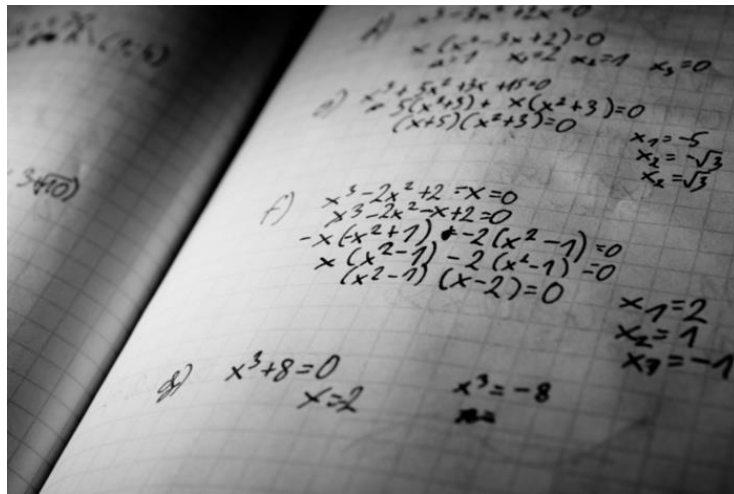 x³-3x²+2x=0
x(x²-3x+2)=0
x₂=1 x₃=0
x³+5x²+3x+15=0
5(x²+3)+ x(x²+3)=0
(x+5)(x²+3)=0
x₁=-5
x₂=-√3
x₃=√3
f) x³-2x²+2-x=0
x³-2x²-x+2=0
-x(-x²+1)+-2(x²-1)=0
x(x²-1)-2(x²-1)=0
(x²-1)(x-2)=0
x₁=2
x₂=1
x₃=-1
g) x³+8=0 x³=-8
x=2 x=